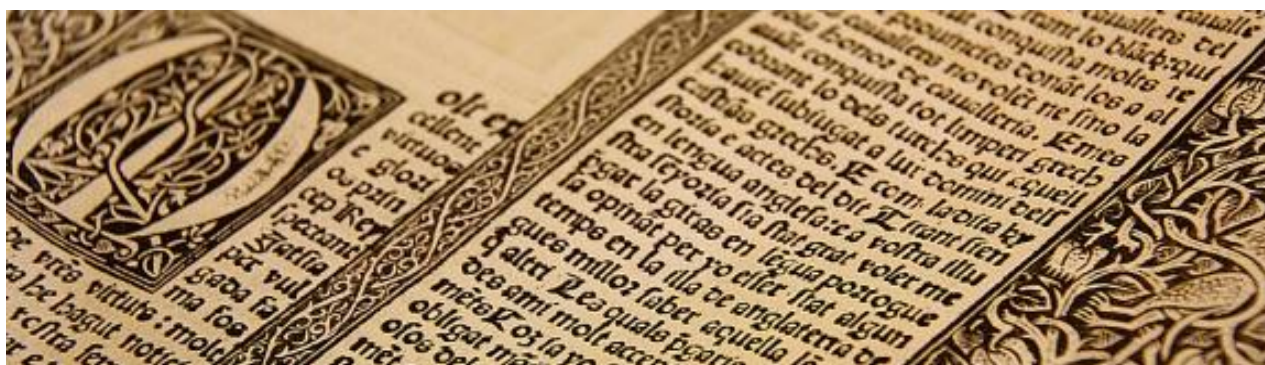 olt ex
cellent
virtuos
e glori
os prin
cep Rey
spectant
per vul
gada fa
ma fos
de vřes virtuts : molt
ra he hagut notic
vostra sere
cauallers del
Tirant lo blāch: qui
conquista molts re
e prouincies donāt los a al
cauallers no volēt ne sino la
honor de caualleria. E mes
auāt conquista tot limperi grech
cobrant lo dels turchs qui aquell
hauiē subiugat a lur domini dels
cristiās grechs. E com la dita hy
storia e actes del dit Tirant sien
en lengua anglesa: e a vostra illu
stra senyoria sia stat grat voler me
pgar la giras en lēgua portogue
sa opināt per yo esser stat algun
temps en la illa de anglaterra de
gues millor saber aquella lē
q̄ altri Les quals p̄gari
des ami molt accep
mēts Cor ia yo
obligat mā
osos del
mēt